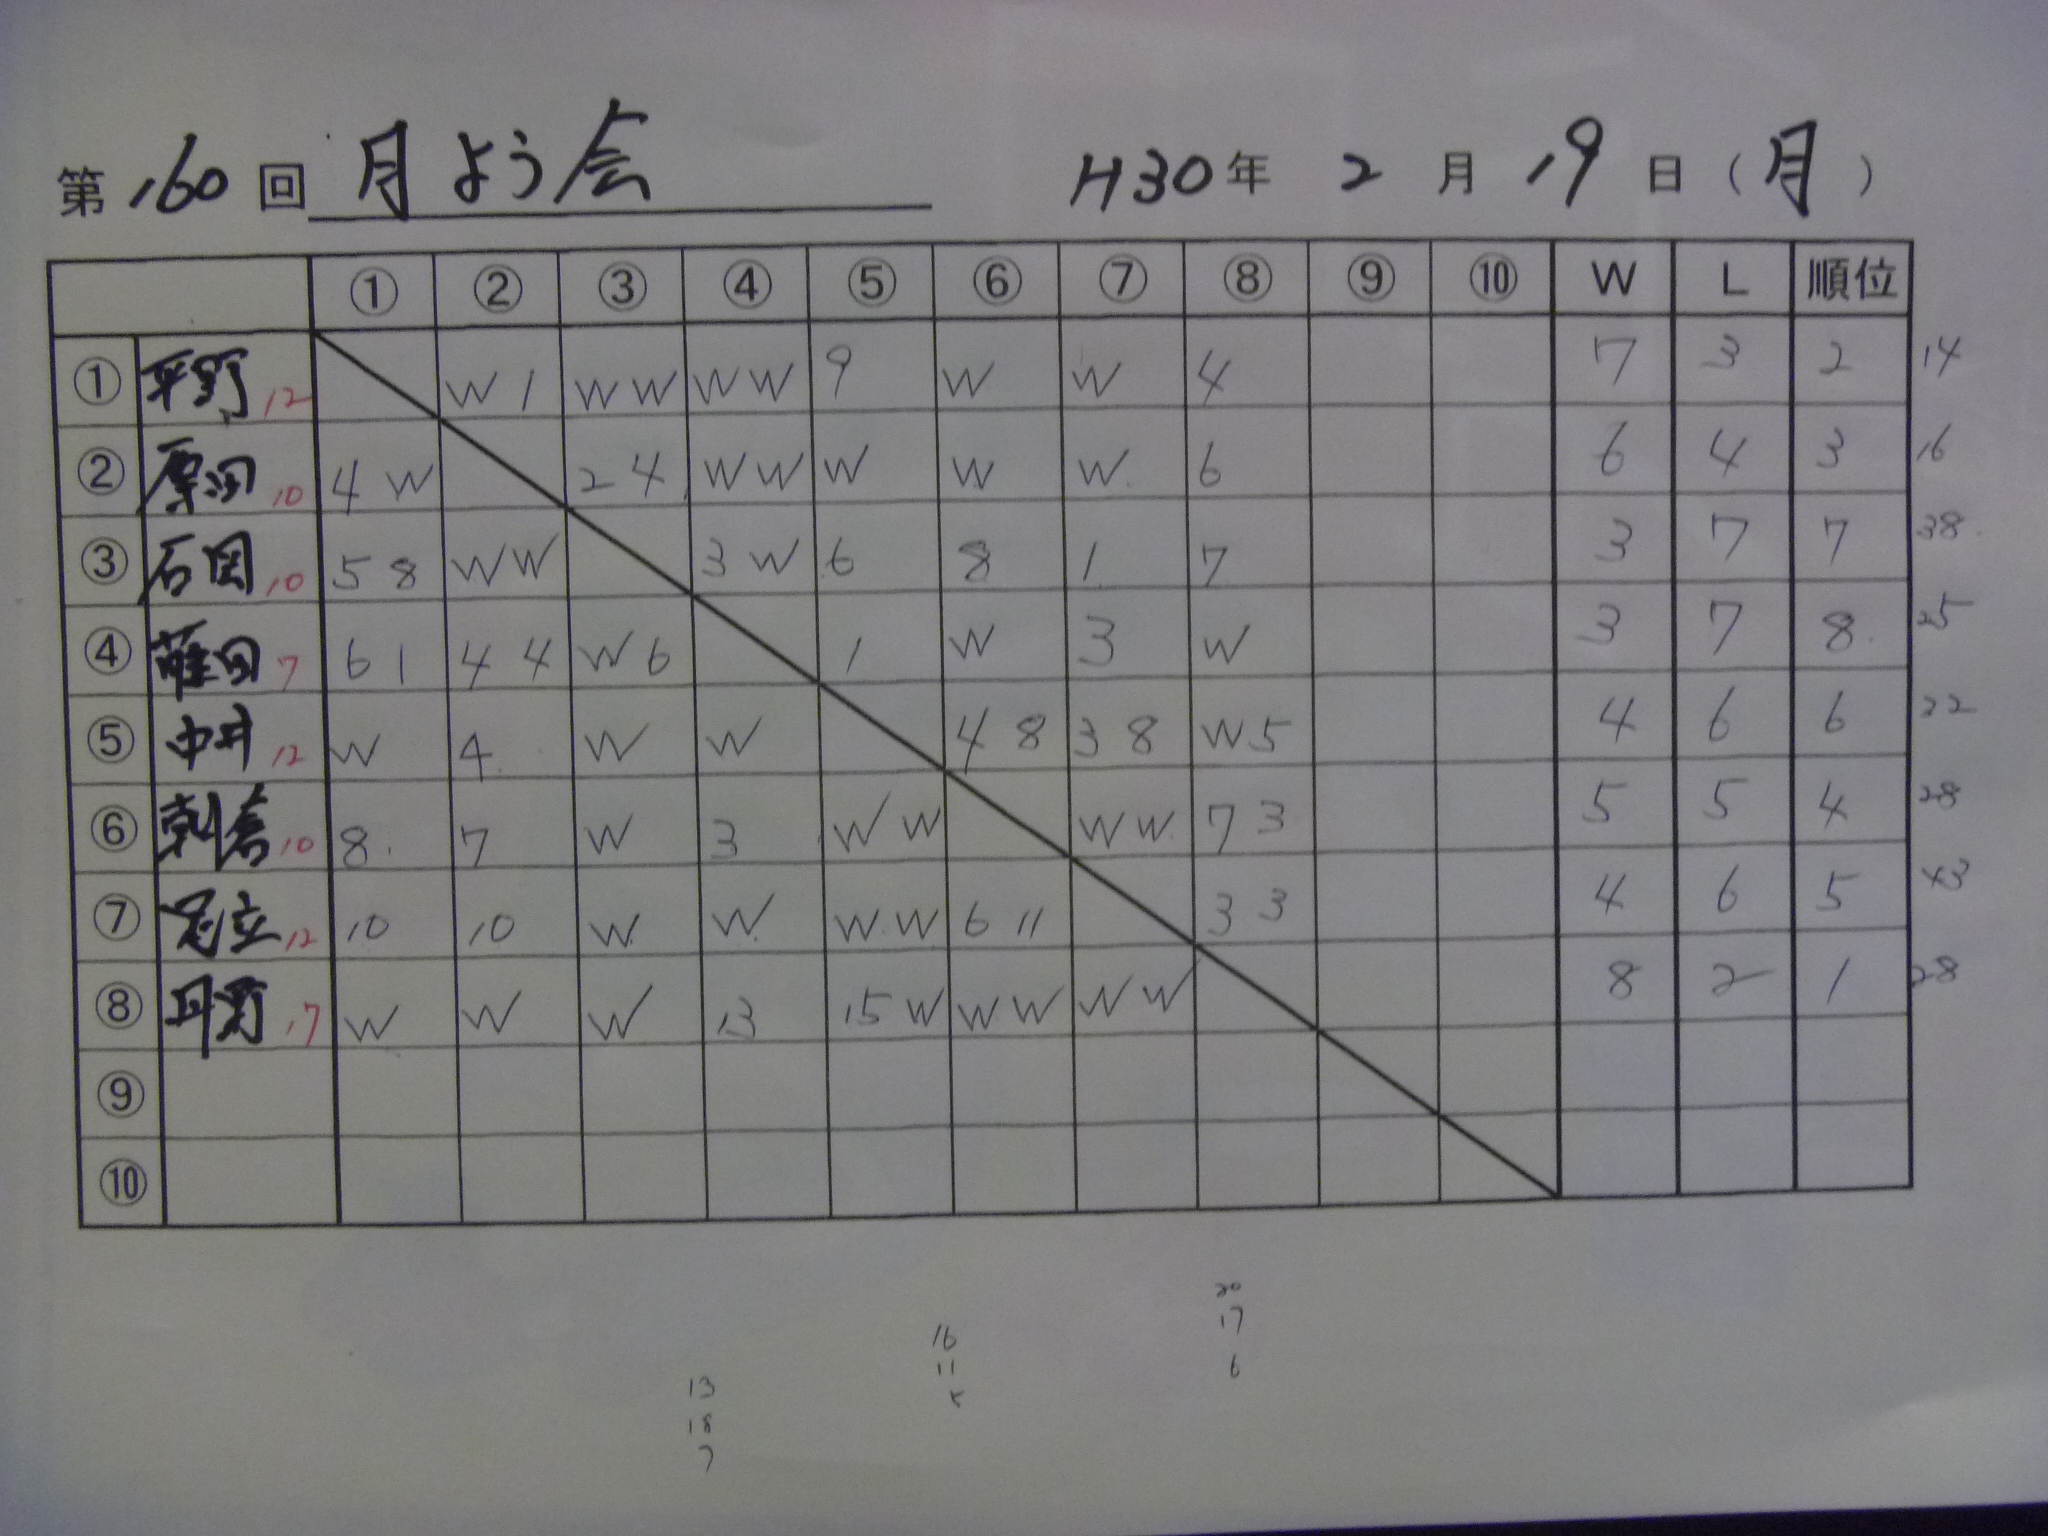 第 160 回 月よう会 H30年 2 月 19 日 (月)
① ② ③ ④ ⑤ ⑥ ⑦ ⑧ ⑨ ⑩ W L 順位
① 平野 12 W 1 W W W W 9 W W 4 7 3 2 14
② 原田 10 4 W 2 4 W W W W W 6 6 4 3 16
③ 石岡 10 5 8 W W 3 W 6 8 1 7 3 7 7 38
④ 7 6 1 4 4 W 6 1 W 3 W 3 7 8 25
⑤ 中井 12 W 4 W W 4 8 3 8 W 5 4 6 6 22
⑥ 朝倉 10 8 7 W 3 W W W W 7 3 5 5 4 28
⑦ 足立 12 10 10 W W W W 6 11 3 3 4 6 5 43
⑧ 丹野 17 W W W 13 15 W W W W W 8 2 1 28
⑨
⑩
20
17
6
16
11
13
18
7